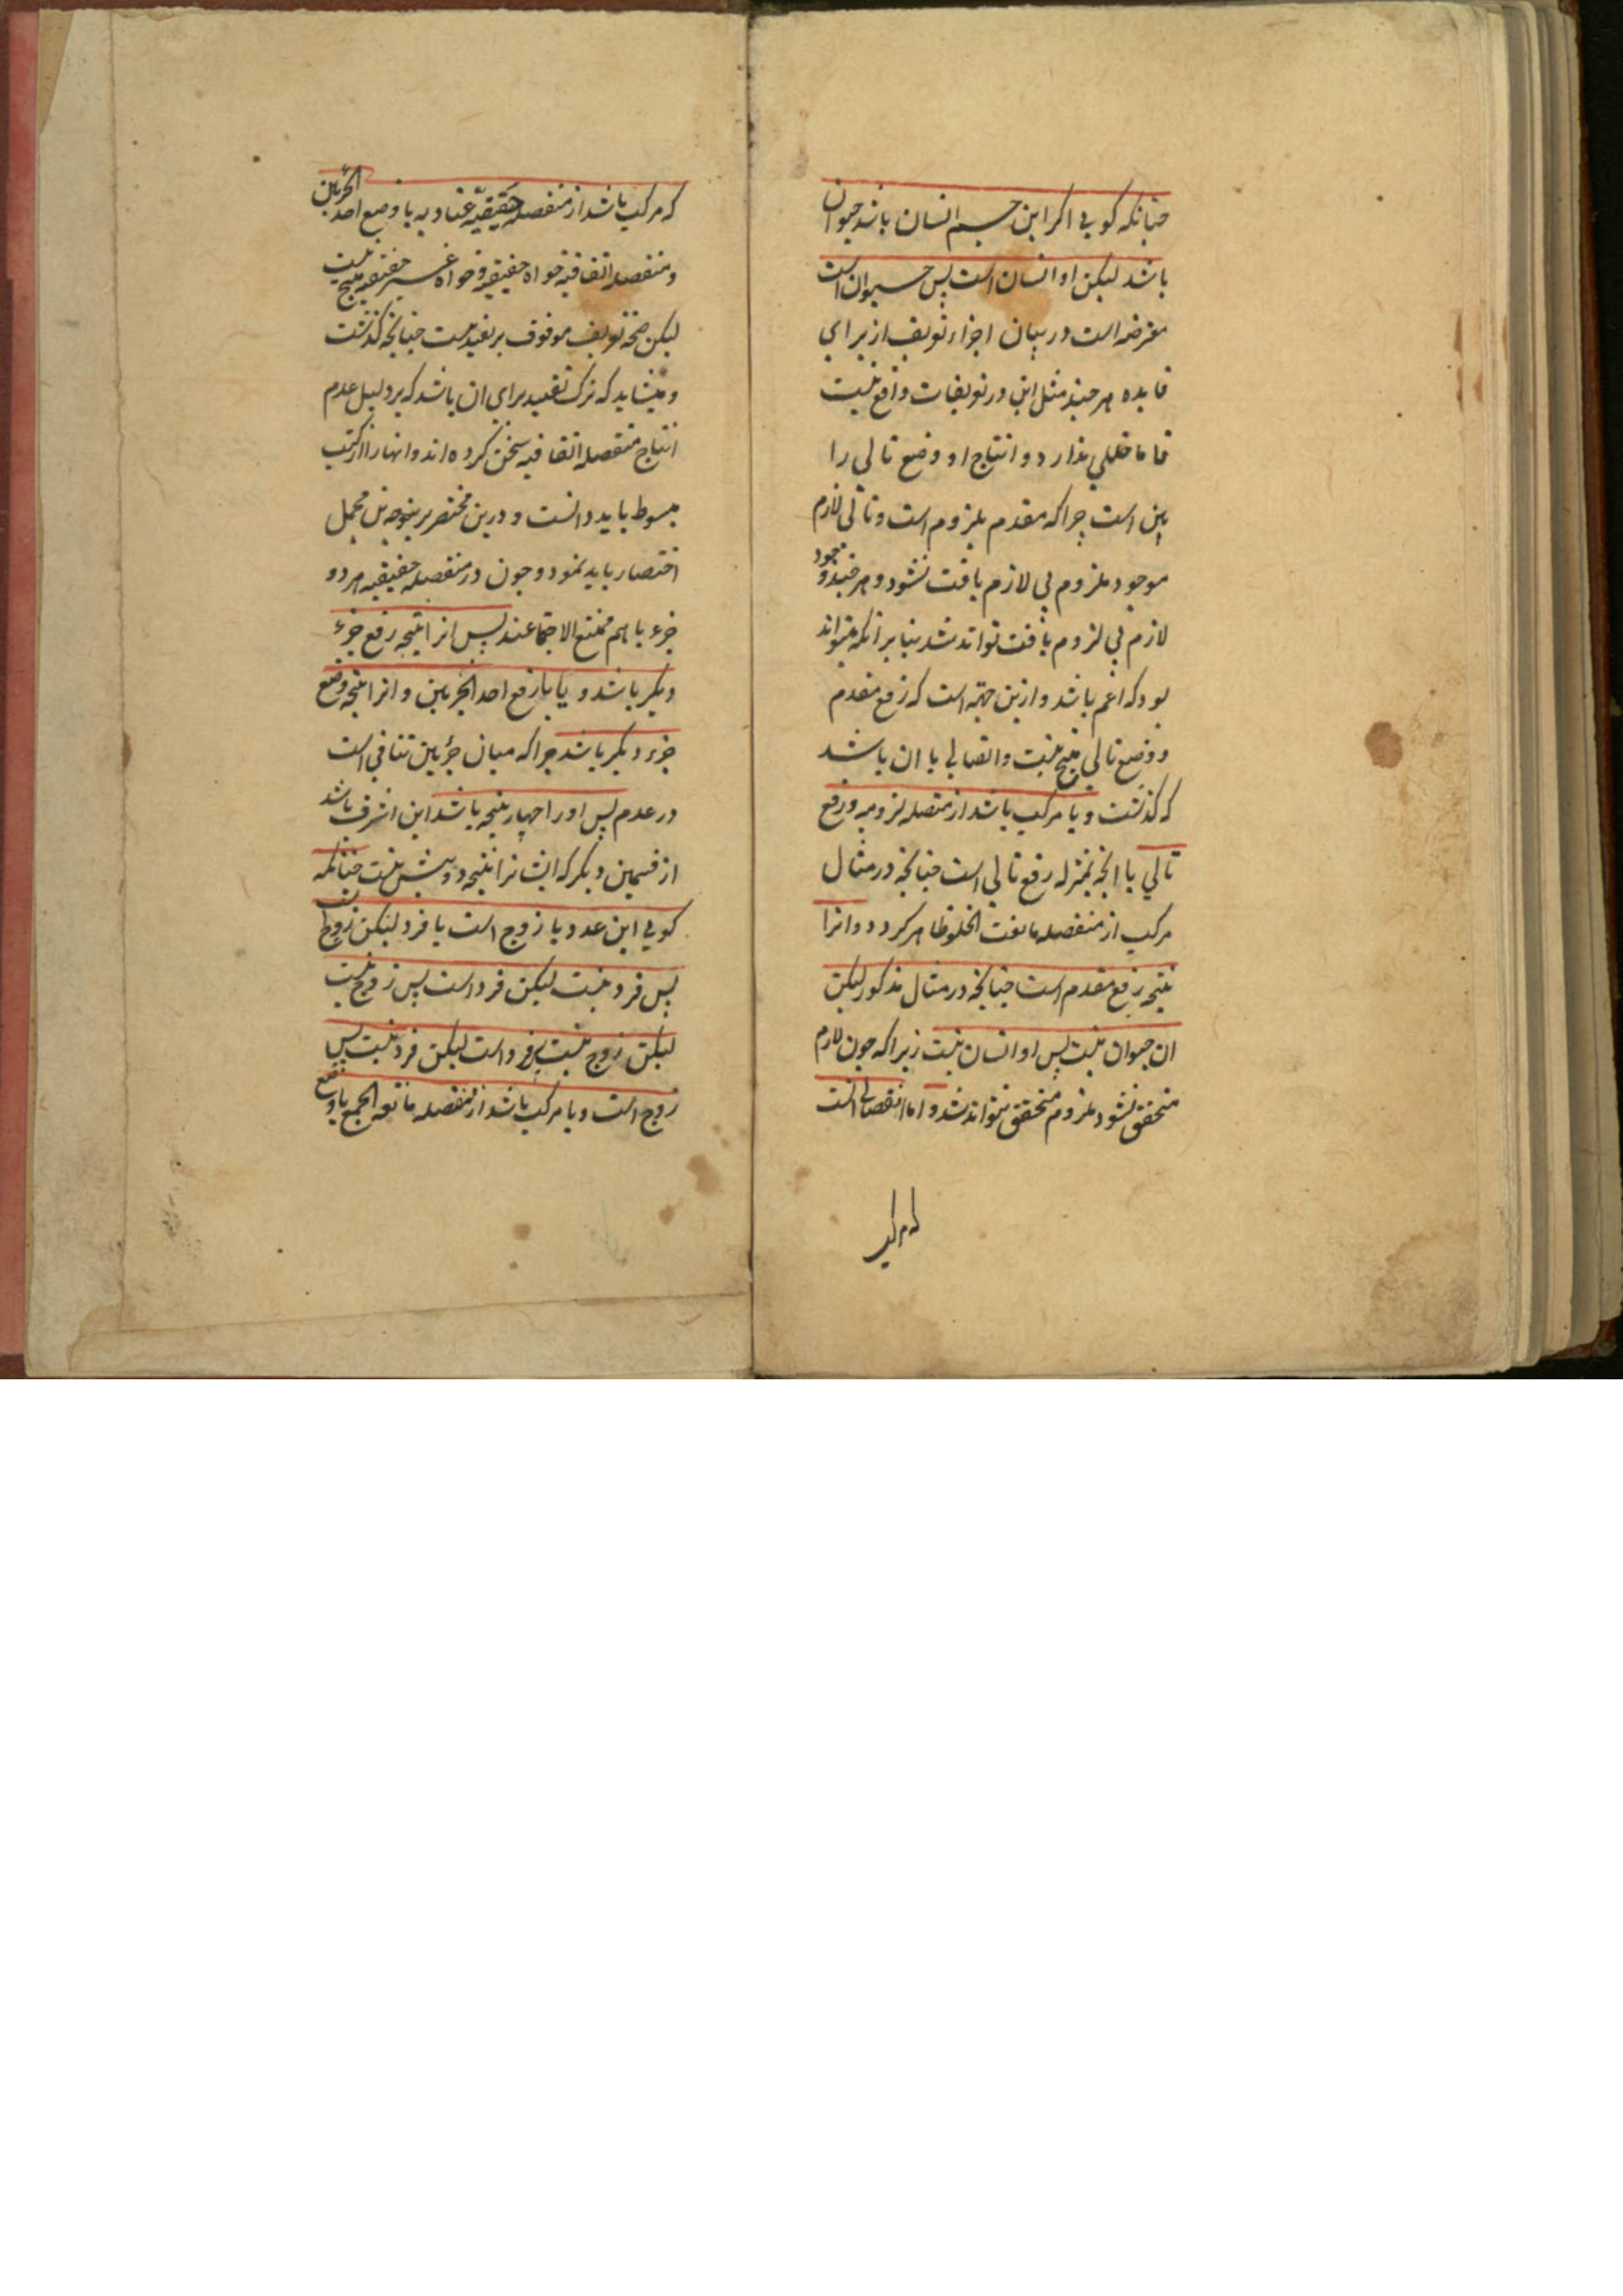 چنانکه کویی اکر این جسم انسان باشد حیوان
باشد لیکن او انسان است پس حیوان است
معرضه است در بیان اجزاء تعریف از برای
فایده هر چند مثل این در تعریفات واقع نیست
اما خللی ندارد و انتاج او وضع تالی را
بین است چرا که مقدم ملزوم است و تالی لازم
موجود ملزوم بی لازم یافت نشود و هر چند وجود
لازم بی لزوم یافت تواند شد بنابر آنکه میتواند
بود که اعم باشد و ازین جهته است که رفع مقدم
و وضع تالی منتج نیست و اتصالی یا ان باشد
که کذشت و یا مرکب باشد از متصله لزومیه و رفع
تالی یا انچه بمنزله رفع تالی است چنانچه در مثال
مرکب از منفصله مانعت الخلو ظاهر کردد و انرا
نتیجه رفع مقدم است چنانچه در مثال مذکور لیکن
ان حیوان نیست پس او انسان نیست زیرا که چون لازم
متحقق نشود ملزوم متحقق نتواند شد و اما انفصالی انست
که مرکب
که مرکب باشد از منفصله حقیقیه عنادیه با وضع احد الجزئین
و منفصله اتفاقیه خواه حقیقیه و خواه غیر حقیقیه منتج نیست
لیکن صحة تعریف موقوف بر تقیید نیست چنانچه کذشت
و میشاید که ترک تقیید برای ان باشد که بر دلیل عدم
انتاج منفصله اتفاقیه سخن کرده اند و انها را از کتب
مبسوط باید دانست و درین مختصر بر همین مجمل
اختصار باید نمود و چون در منفصله حقیقیه هر دو
جزء با هم ممتنع الاجتماعند پس انرا نتیجه رفع جزء
دیکر باشد و یا با رفع احد الجزئین و انرا نتیجه وضع
جزء دیکر باشد چرا که میان جزئین تنافی است
در عدم پس او را چهار نتیجه باشد این اشرف باشد
از قسمین دیکر که ایشانرا نتیجه دو بیش نیست چنانکه
کویی این عدد یا زوج است یا فرد لیکن زوج است
پس فرد نیست لیکن فرد است پس زوج نیست
لیکن زوج نیست پس فرد است لیکن فرد نیست پس
زوج است و یا مرکب باشد از منفصله مانعه الجمع با وضع